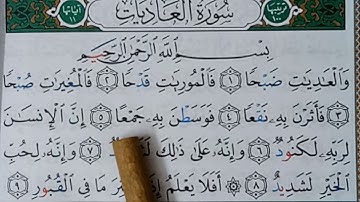 ترتيبها ١٠٠ سُورَةُ الْعَادِيَاتِ آياتها ١١
بِسْمِ اللَّهِ الرَّحْمَٰنِ الرَّحِيمِ
وَالْعَٰدِيَٰتِ ضَبْحًا ١ فَالْمُورِيَٰتِ قَدْحًا ٢ فَالْمُغِيرَٰتِ صُبْحًا
٣ فَأَثَرْنَ بِهِ نَقْعًا ٤ فَوَسَطْنَ بِهِ جَمْعًا ٥ إِنَّ الْإِنسَٰنَ
لِرَبِّهِ لَكَنُودٌ ٦ وَإِنَّهُ عَلَىٰ ذَٰلِكَ ٧ وَإِنَّهُ لِحُبِّ
الْخَيْرِ لَشَدِيدٌ ٨ ۞ أَفَلَا يَعْلَمُ مَا فِي الْقُبُورِ ٩